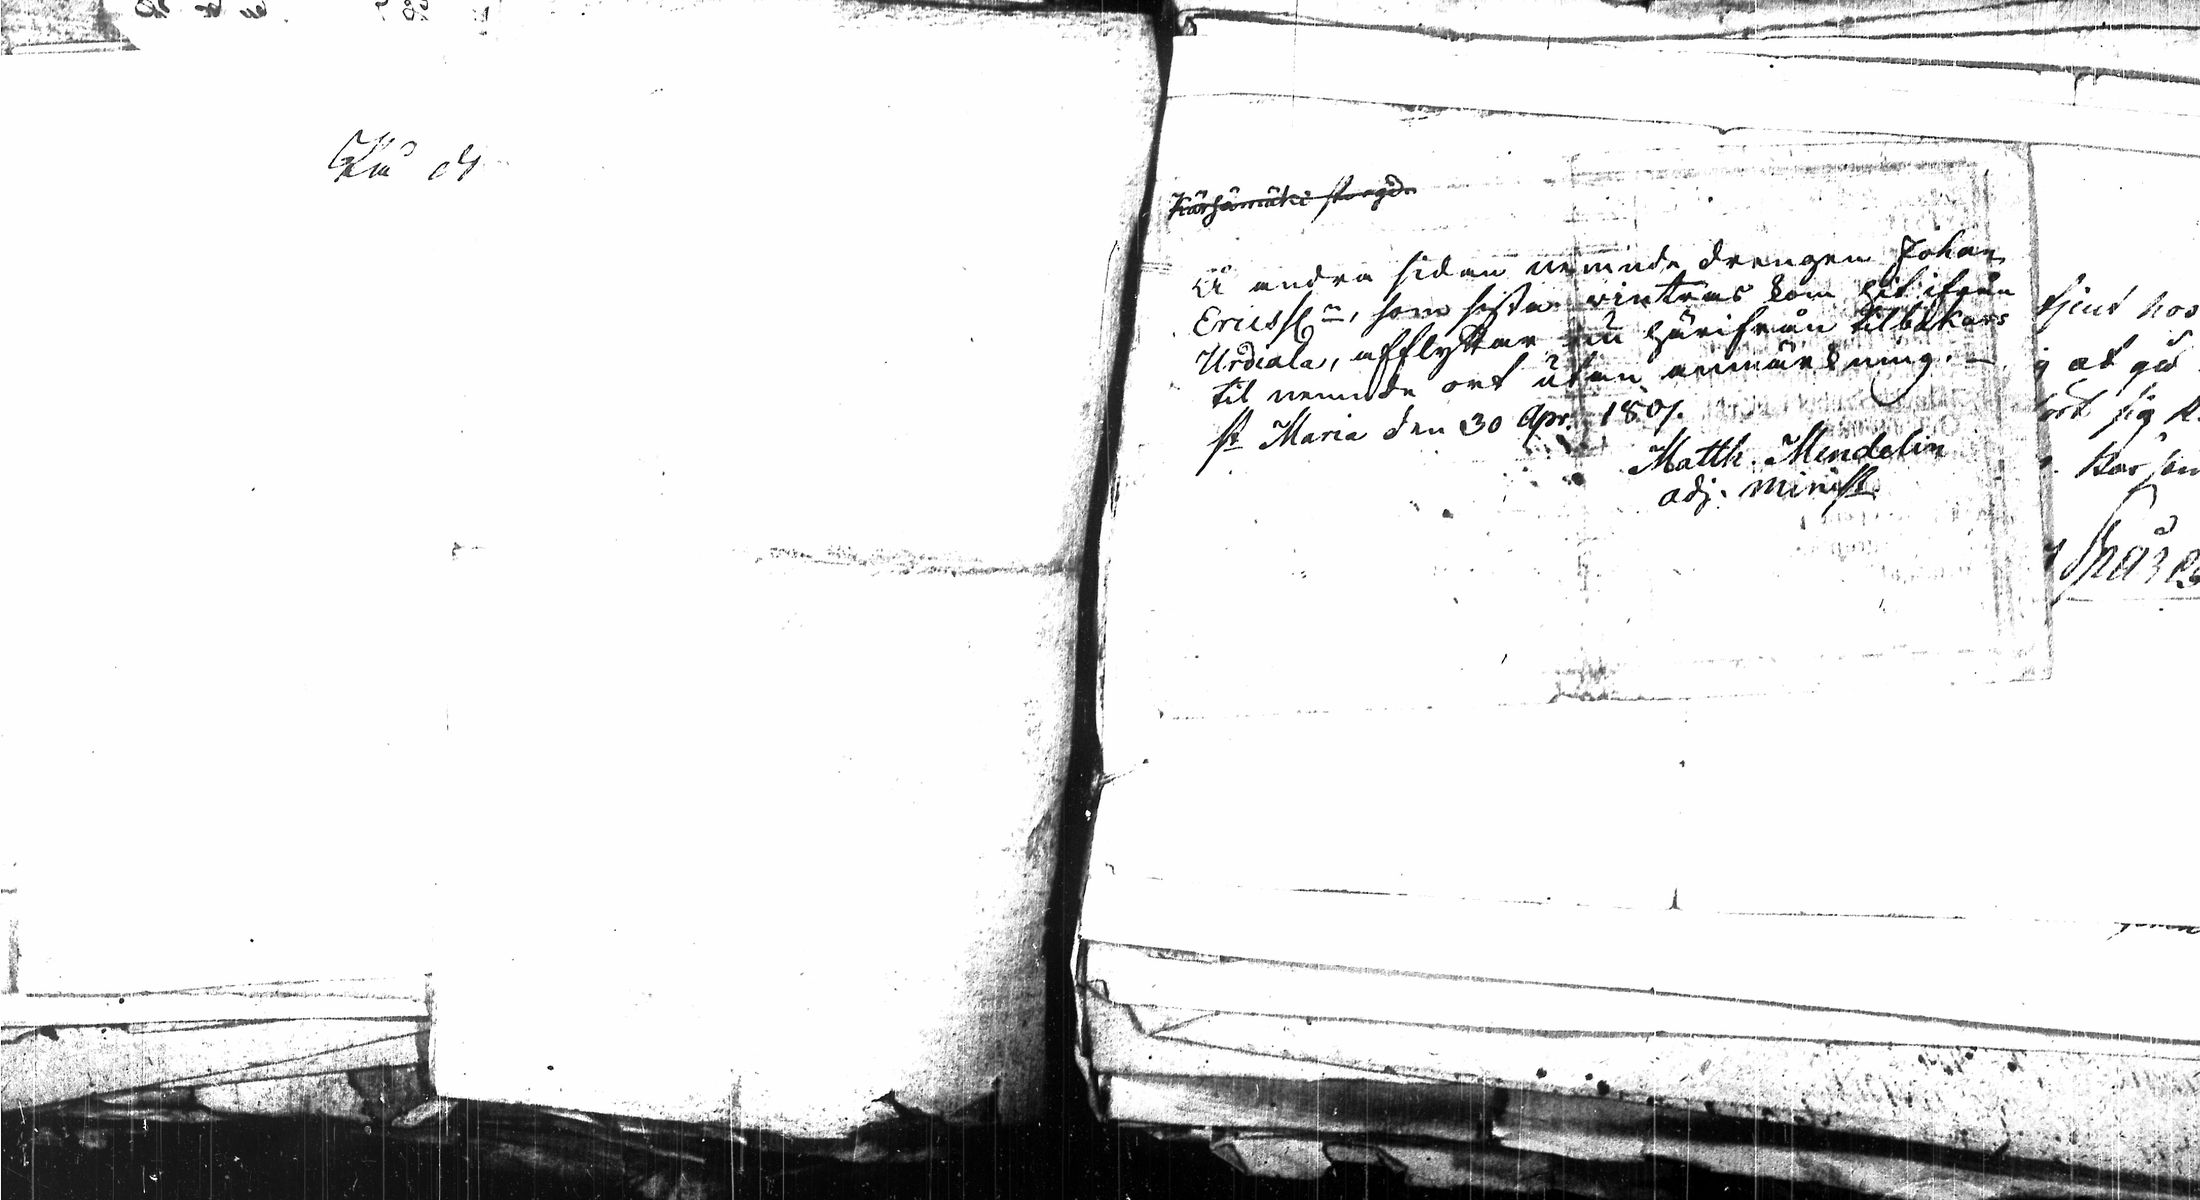 Kärsämäki
Å andra sidan nemnde drengen Johan
Ericss, som sista vintras kom hit ifrån
Urdiala, afflyttar nu härifrån tilbakars
til nemnde ort utan anmärkning. —
St Maria den 30 Apr. 1807.
Matth. Mendelin
adj. minist
tjent hos
at
sig